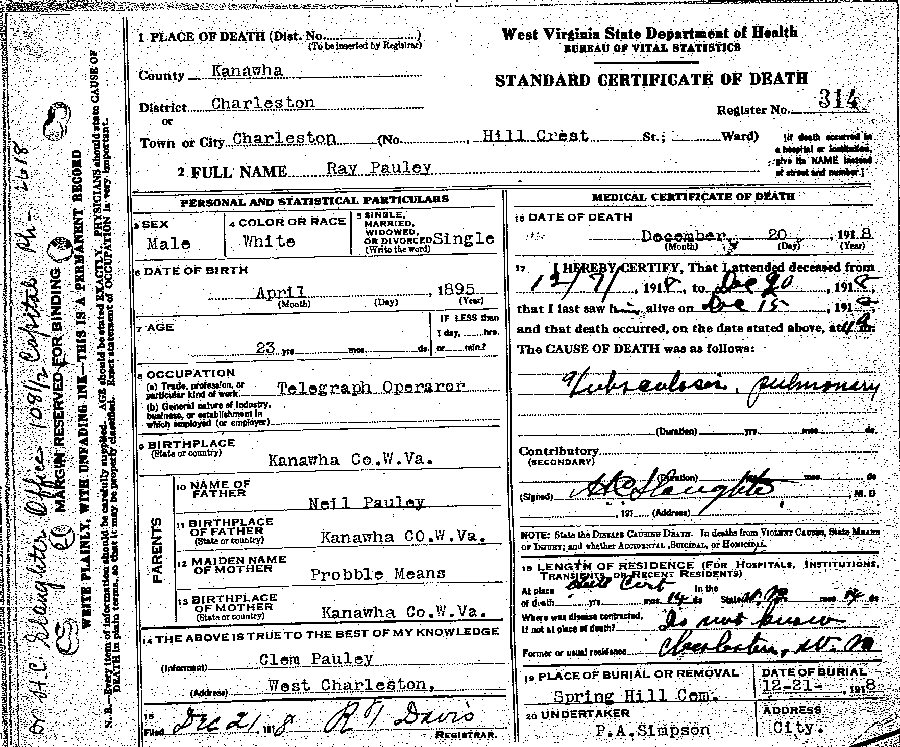 West Virginia State Department of Health
BUREAU OF VITAL STATISTICS
STANDARD CERTIFICATE OF DEATH
Register No. 314
1 PLACE OF DEATH (Dist. No. )
(To be inserted by Registrar)
County Kanawha
District Charleston
or
Town or City Charleston (No. Hill Crest St.; Ward)
[If death occurred in
a hospital or institution,
give its NAME instead
of street and number.]
2 FULL NAME Ray Pauley
PERSONAL AND STATISTICAL PARTICULARS
3 SEX
Male
4 COLOR OR RACE
White
5 SINGLE,
MARRIED,
WIDOWED,
OR DIVORCED Single
(Write the word)
6 DATE OF BIRTH
April 1895
(Month) (Day) (Year)
7 AGE
23 yrs. mos. ds.
IF LESS than
1 day, hrs.
or min.?
8 OCCUPATION
(a) Trade, profession, or
particular kind of work Telegraph Operaror
(b) General nature of industry,
business, or establishment in
which employed (or employer)
9 BIRTHPLACE
(State or country)
Kanawha Co.W.Va.
PARENTS
10 NAME OF
FATHER
Neil Pauley
11 BIRTHPLACE
OF FATHER
(State or country) Kanawha CO.W.Va.
12 MAIDEN NAME
OF MOTHER
Probble Means
13 BIRTHPLACE
OF MOTHER
(State or country) Kanawha Co.W.Va.
14 THE ABOVE IS TRUE TO THE BEST OF MY KNOWLEDGE
(Informant) Clem Pauley
(Address) West Charleston,
15
Filed Dec 21 1918 R T Davis
REGISTRAR.
MEDICAL CERTIFICATE OF DEATH
16 DATE OF DEATH
December 20 1918
(Month) (Day) (Year)
17 I HEREBY CERTIFY, That I attended deceased from
12/7/, 1918, to Dec 20, 1918,
that I last saw him alive on Dec 15, 1918,
and that death occurred, on the date stated above, at m.
The CAUSE OF DEATH was as follows:
Tuberculosis, pulmonary
(Duration) yrs. mos. ds.
Contributory
(SECONDARY)
(Duration) mos. ds
(Signed) H C Slaughter, M. D
, 191 (Address)
NOTE: State the DISEASE CAUSING DEATH. In deaths from VIOLENT CAUSES, State MEANS
OF INJURY; and whether ACCIDENTAL, SUICIDAL, or HOMICIDAL.
18 LENGTH OF RESIDENCE (FOR HOSPITALS, INSTITUTIONS,
TRANSIENTS, OR RECENT RESIDENTS)
At place
of death yrs. mos. 14 ds
In the
State mos. ds
Where was disease contracted,
If not at place of death? Do not know
Former or usual residence Charleston, W. Va
19 PLACE OF BURIAL OR REMOVAL
Spring Hill Cem.
DATE OF BURIAL
12-21- 1918
20 UNDERTAKER
P.A.Simpson
ADDRESS
City.
Dr H.C. Slaughter Office 108 1/2 Capital Ph- 2618
MARGIN RESERVED FOR BINDING
WRITE PLAINLY, WITH UNFADING INK—THIS IS A PERMANENT RECORD
N. B.—Every item of information should be carefully supplied. AGE should be stated EXACTLY. PHYSICIANS should state CAUSE OF
DEATH in plain terms, so that it may be properly classified. Exact statement of OCCUPATION is very important.